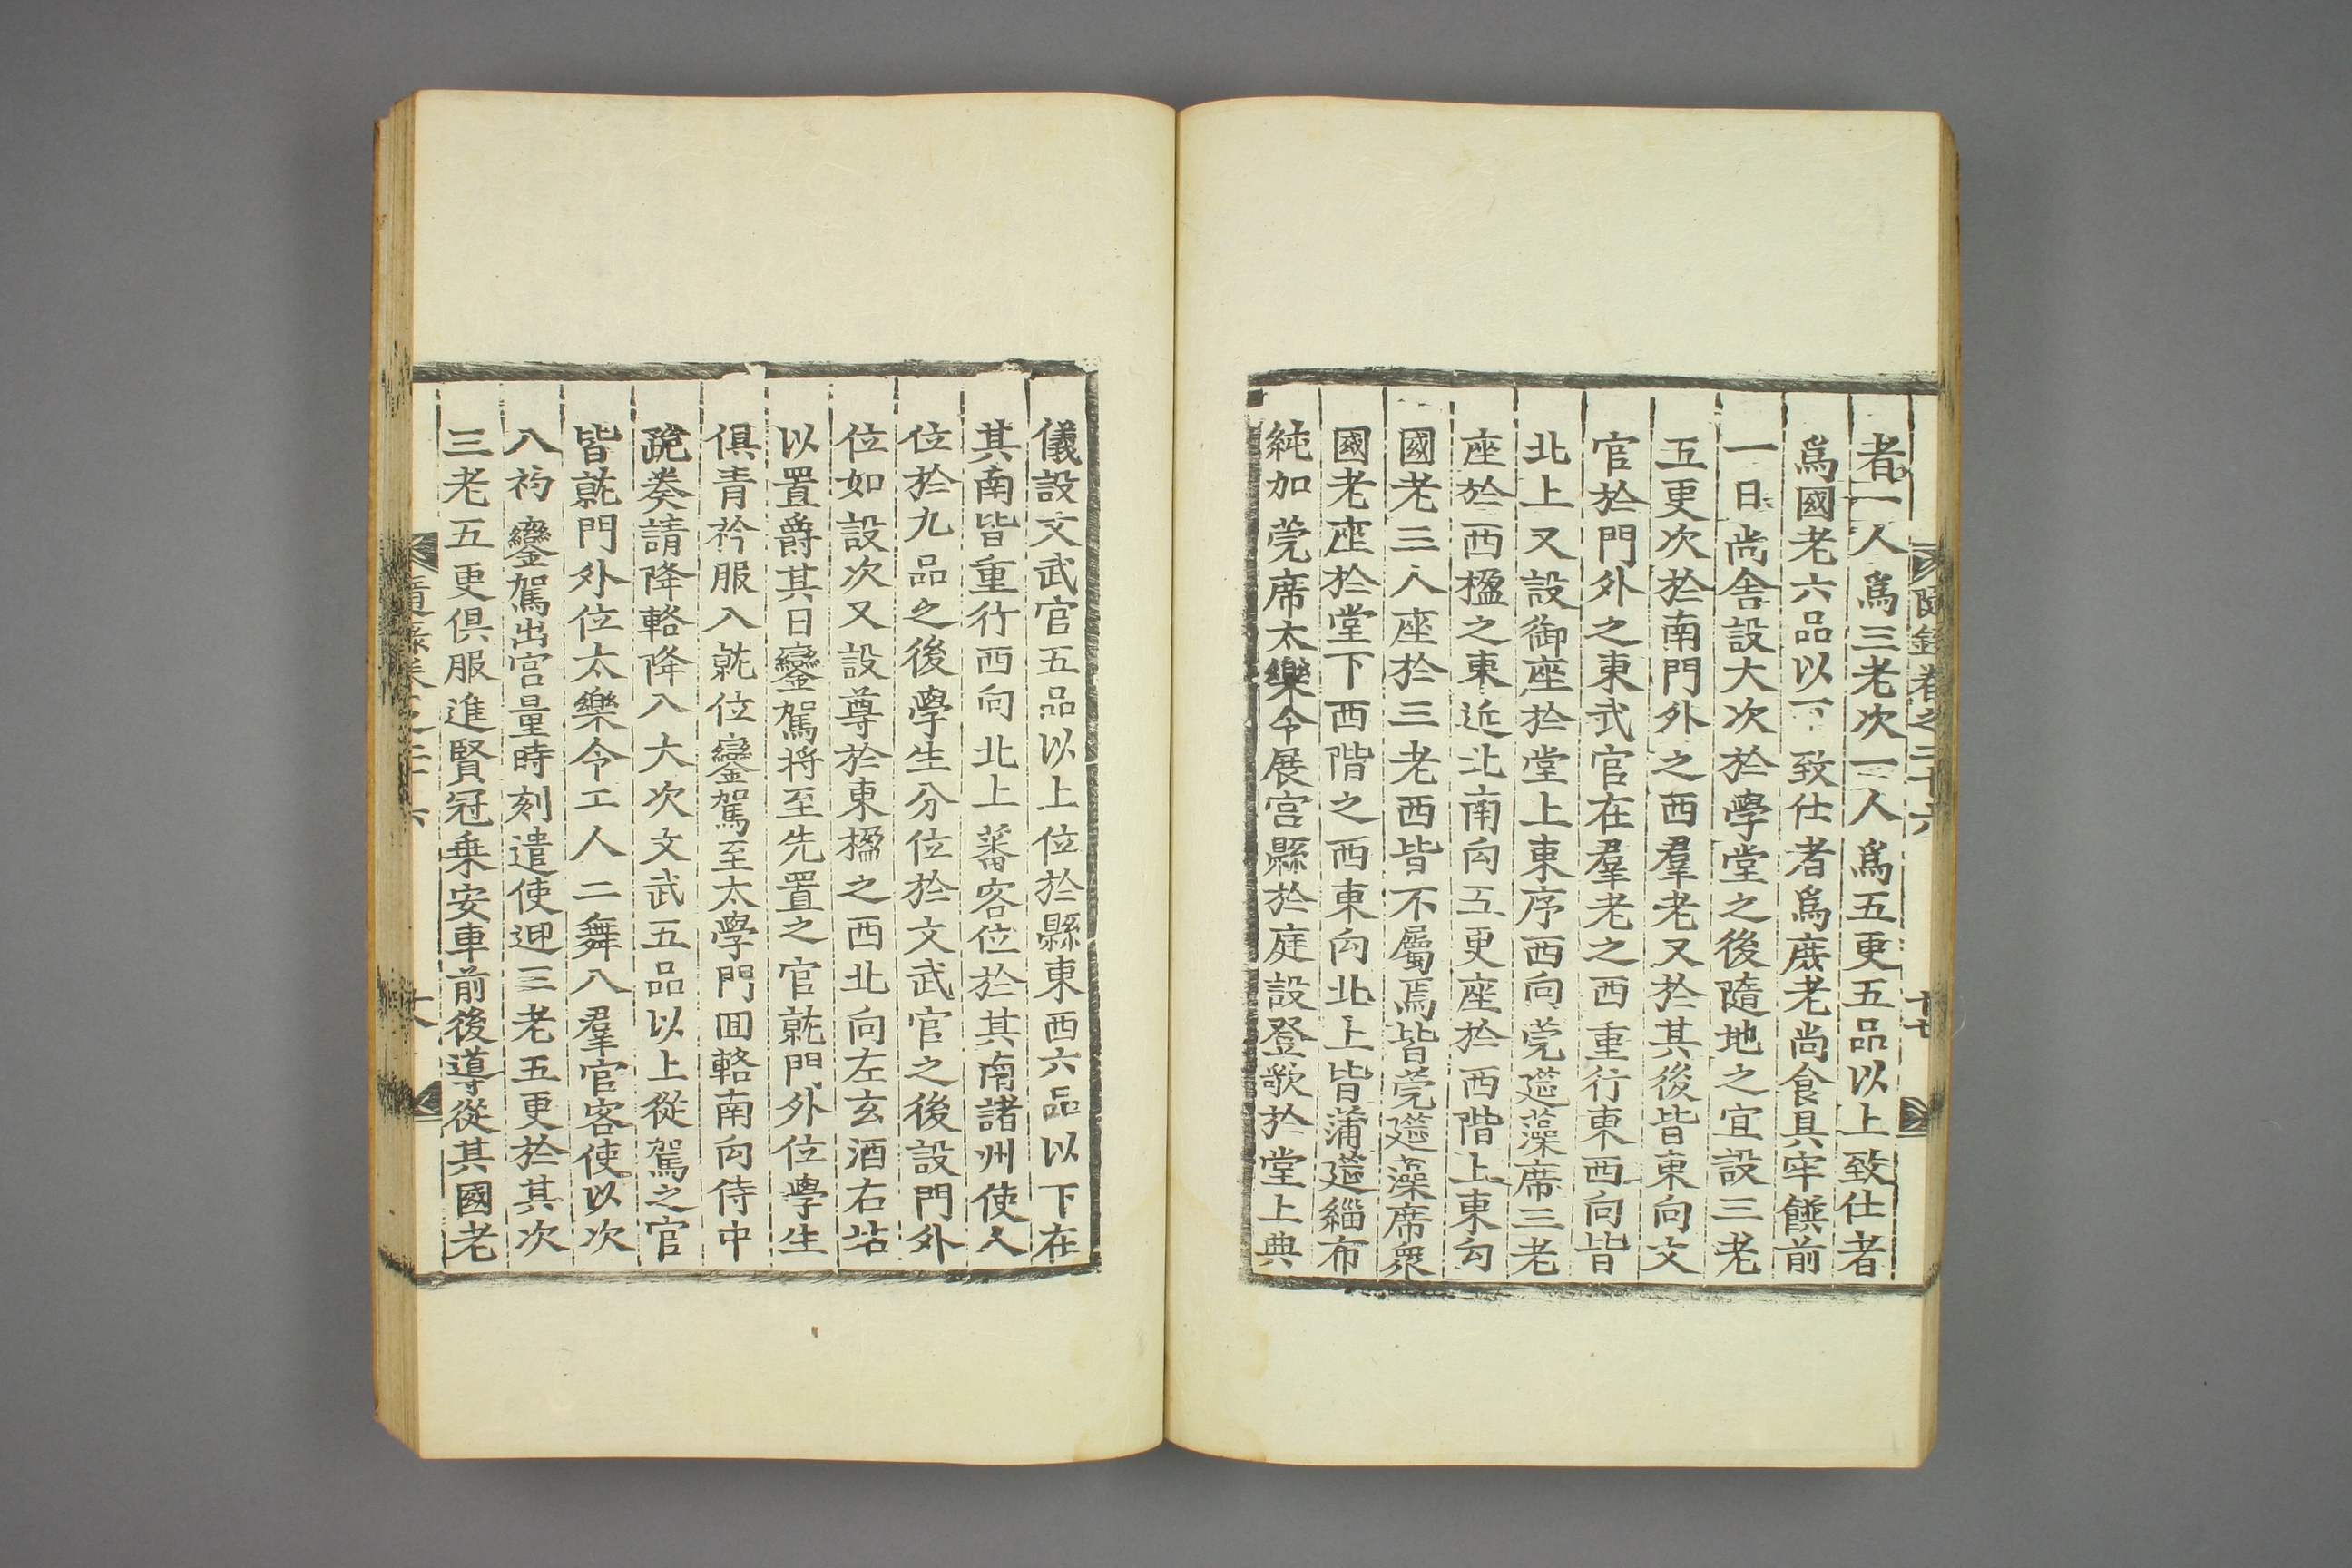 隨錄卷之二十六
十七
者一人爲三老次一人爲五更五品以上致仕者
爲國老六品以下致仕者爲庶老尚食具牢饌前
一日尚舍設大次於學堂之後隨地之宜設三老
五更次於南門外之西羣老又於其後皆東向文
官於門外之東武官在羣老之西重行東西向皆
北上又設御座於堂上東序西向莞筵藻席三老
座於西楹之東近北南向五更座於西階上東向
國老三人座於三老西皆不屬焉皆莞筵藻席衆
國老座於堂下西階之西東向北上皆蒲筵緇布
純加莞席太樂令展宮縣於庭設登歌於堂上典
儀設文武官五品以上位於縣東西六品以下在
其南皆重行西向北上蕃客位於其南諸州使人
位於九品之後學生分位於文武官之後設門外
位如設次又設尊於東楹之西北向左玄酒右坫
以置爵其日鑾駕將至先置之官就門外位學生
俱青衿服入就位鑾駕至太學門回輅南向侍中
跪奏請降輅降入大次文武五品以上從駕之官
皆就門外位太樂令工人二舞入羣官客使以次
入初鑾駕出宮量時刻遣使迎三老五更於其次
三老五更俱服進賢冠乗安車前後導從其國老
隨錄卷之二十六